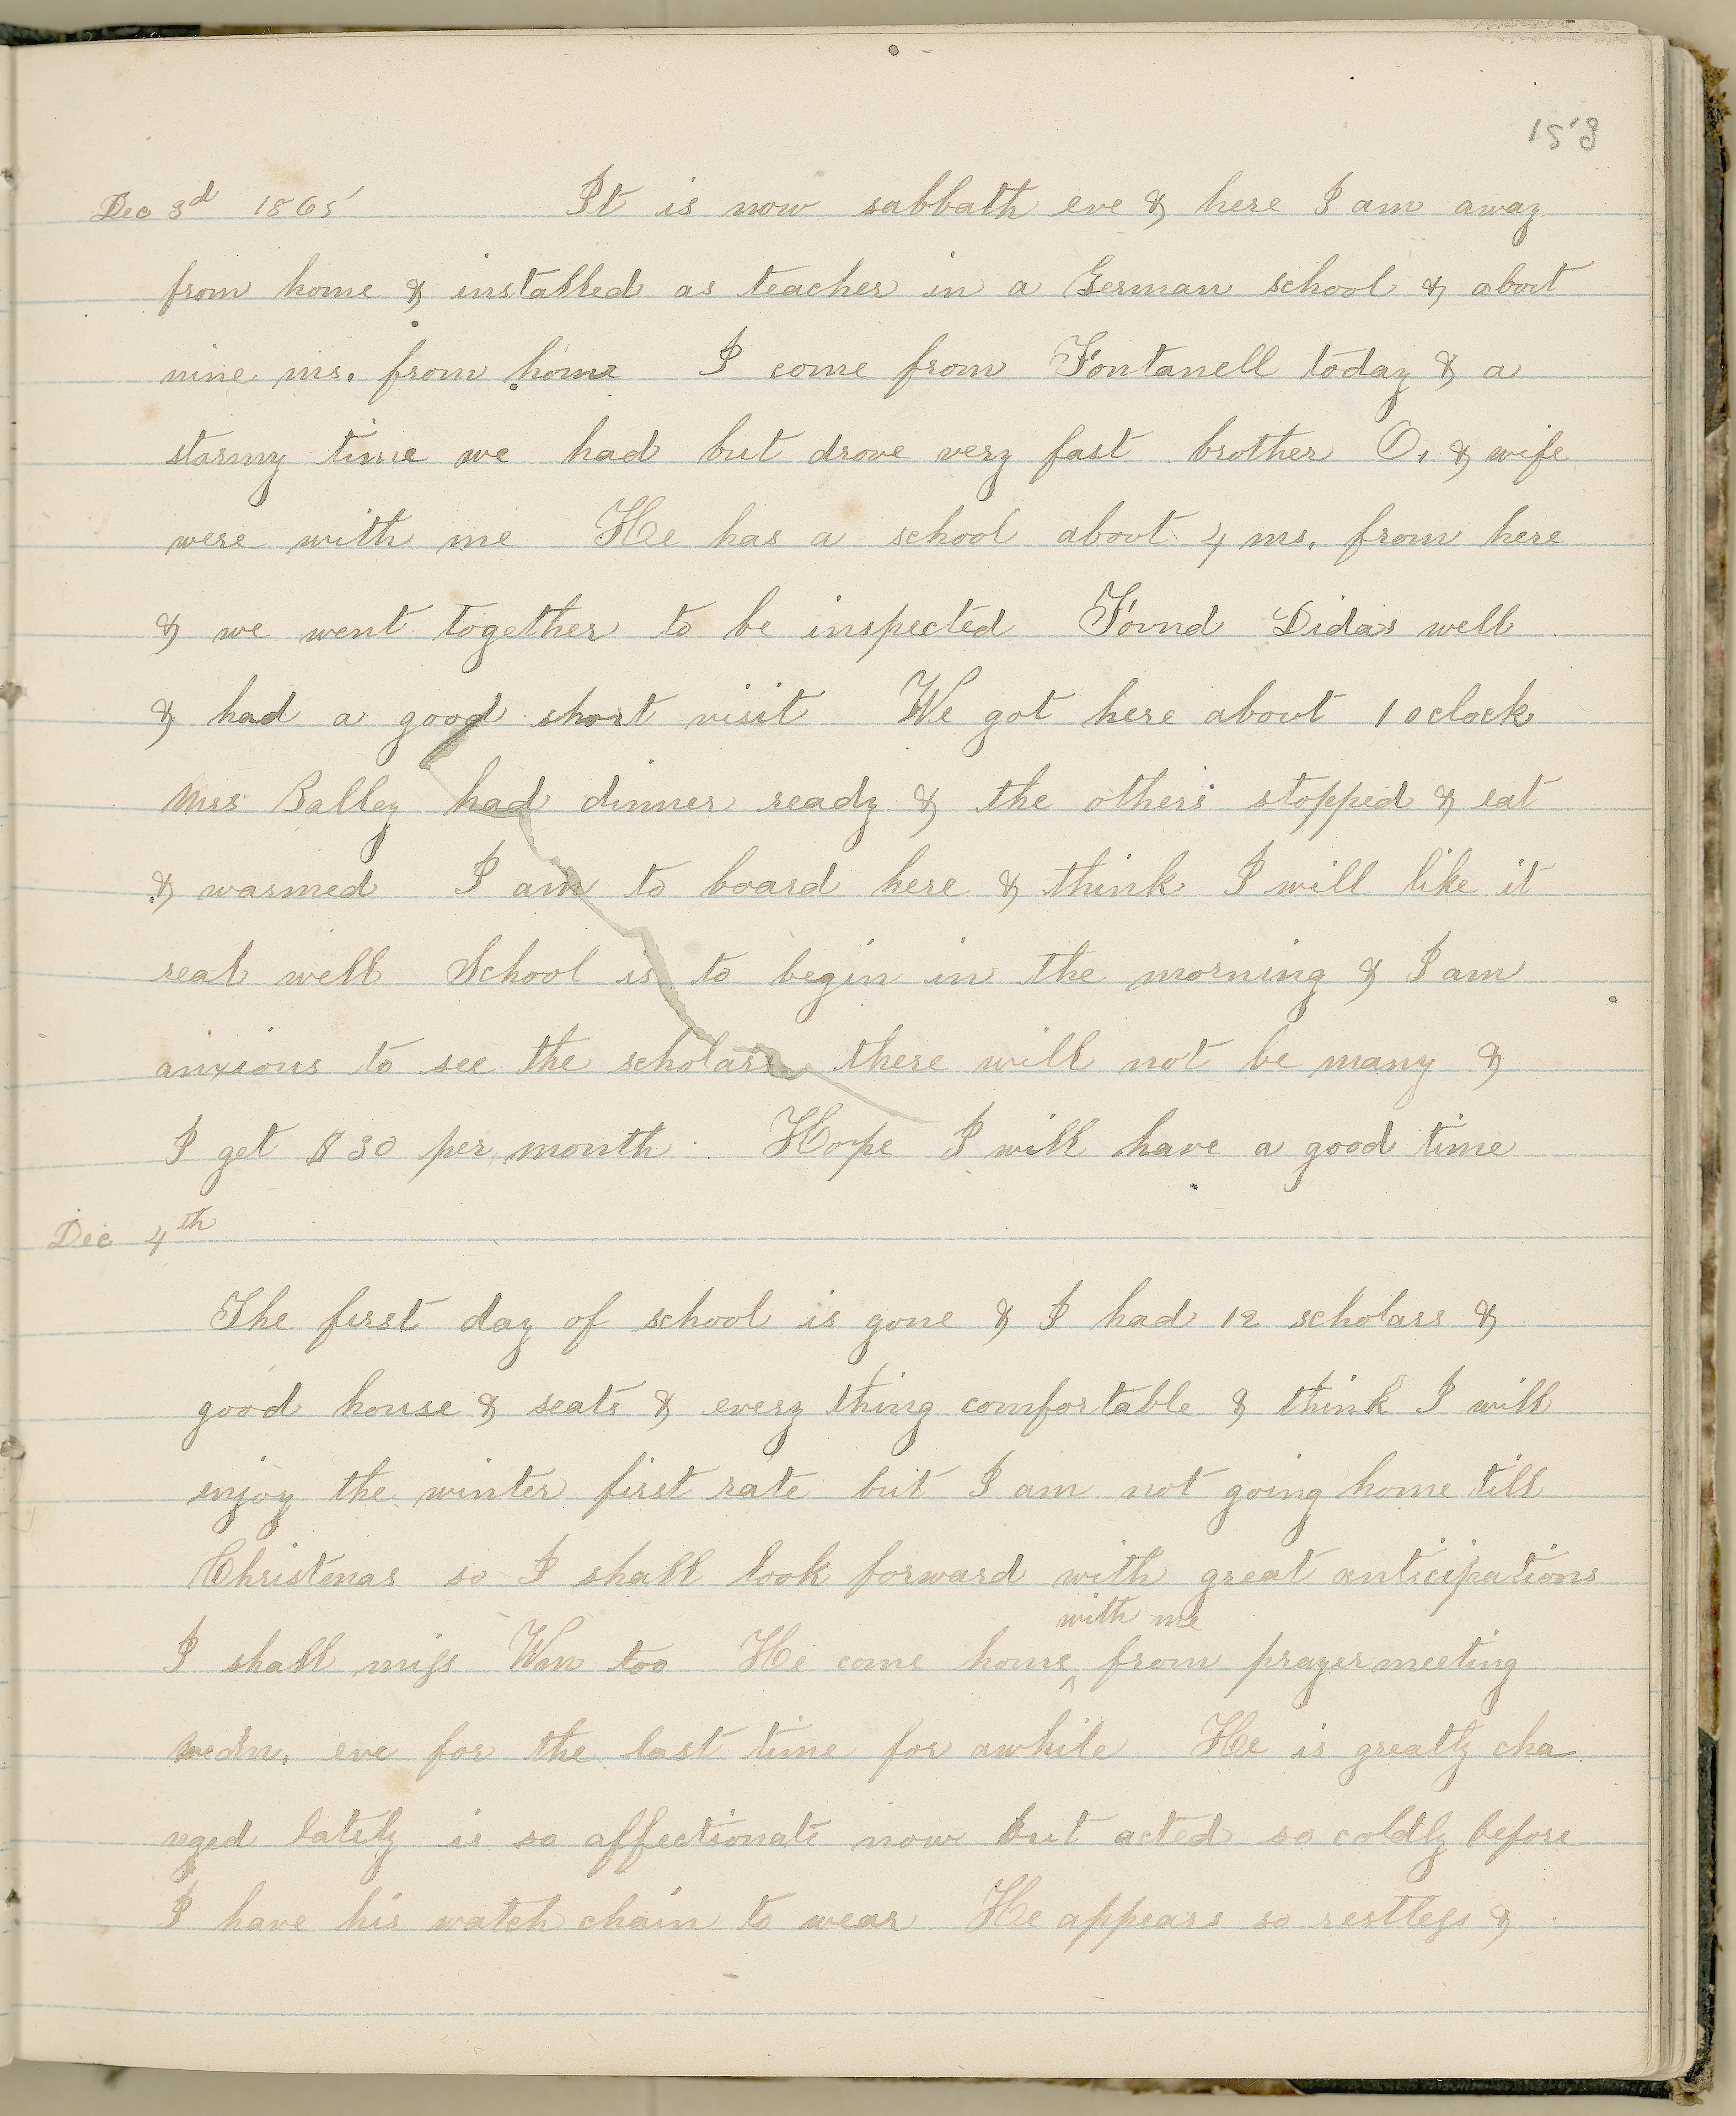 153
Dec 3d 1865 It is now sabbath eve & here I am away
from home & installed as teacher in a German school & about
nine ms. from home I come from Fontanell today & a
stormy time we had but drove very fast brother O. & wife
were with me He has a school about 4 ms. from here
& we went together to be inspected Found Didas well
& had a good short visit We got here about 1 oclock
Mrs Balley had dinner ready & the others stopped & eat
& warmed I am to board here & think I will like it
real well School is to begin in the morning & I am
anxious to see the scholars there will not be many &
I get $30 per month. Hope I will have a good time
Dec 4th
The first day of school is gone & I had 12 scholars &
good house & seats & every thing comfortable & think I will
enjoy the winter first rate but I am not going home till
Christmas so I shall look forward with great anticipations
with me
I shall miss Wm too He come home ^ from prayermeeting
wedn. eve for the last time for awhile He is greatly cha
nged lately is so affectionate now but acted so coldly before
I have his watch chain to wear He appears so restless &